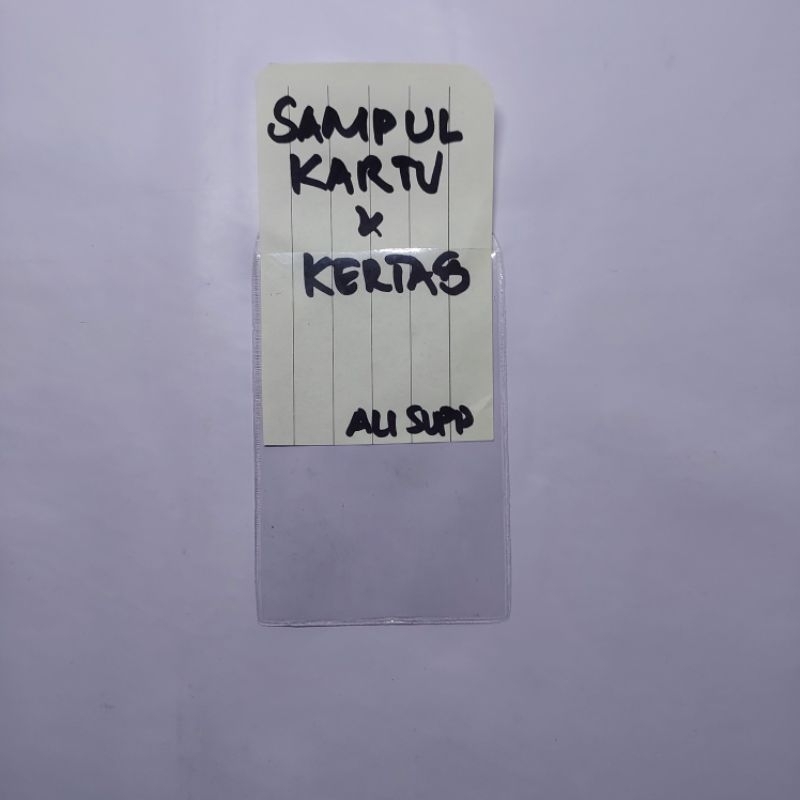 SAMPUL
KARTU
&
KERTAS
ALI SUPP